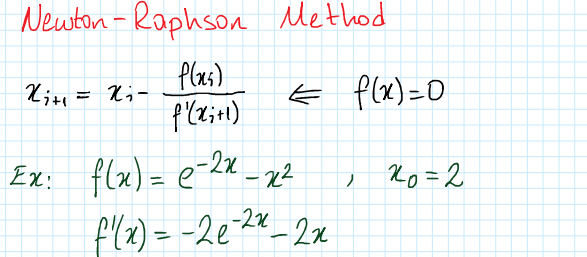 Newton-Raphson Method
x_{i+1} = x_i - f(x_i) / f'(x_{i+1}) ⇐ f(x)=0
Ex: f(x) = e^{-2x} - x^2 , x_0 = 2
f'(x) = -2e^{-2x} - 2x